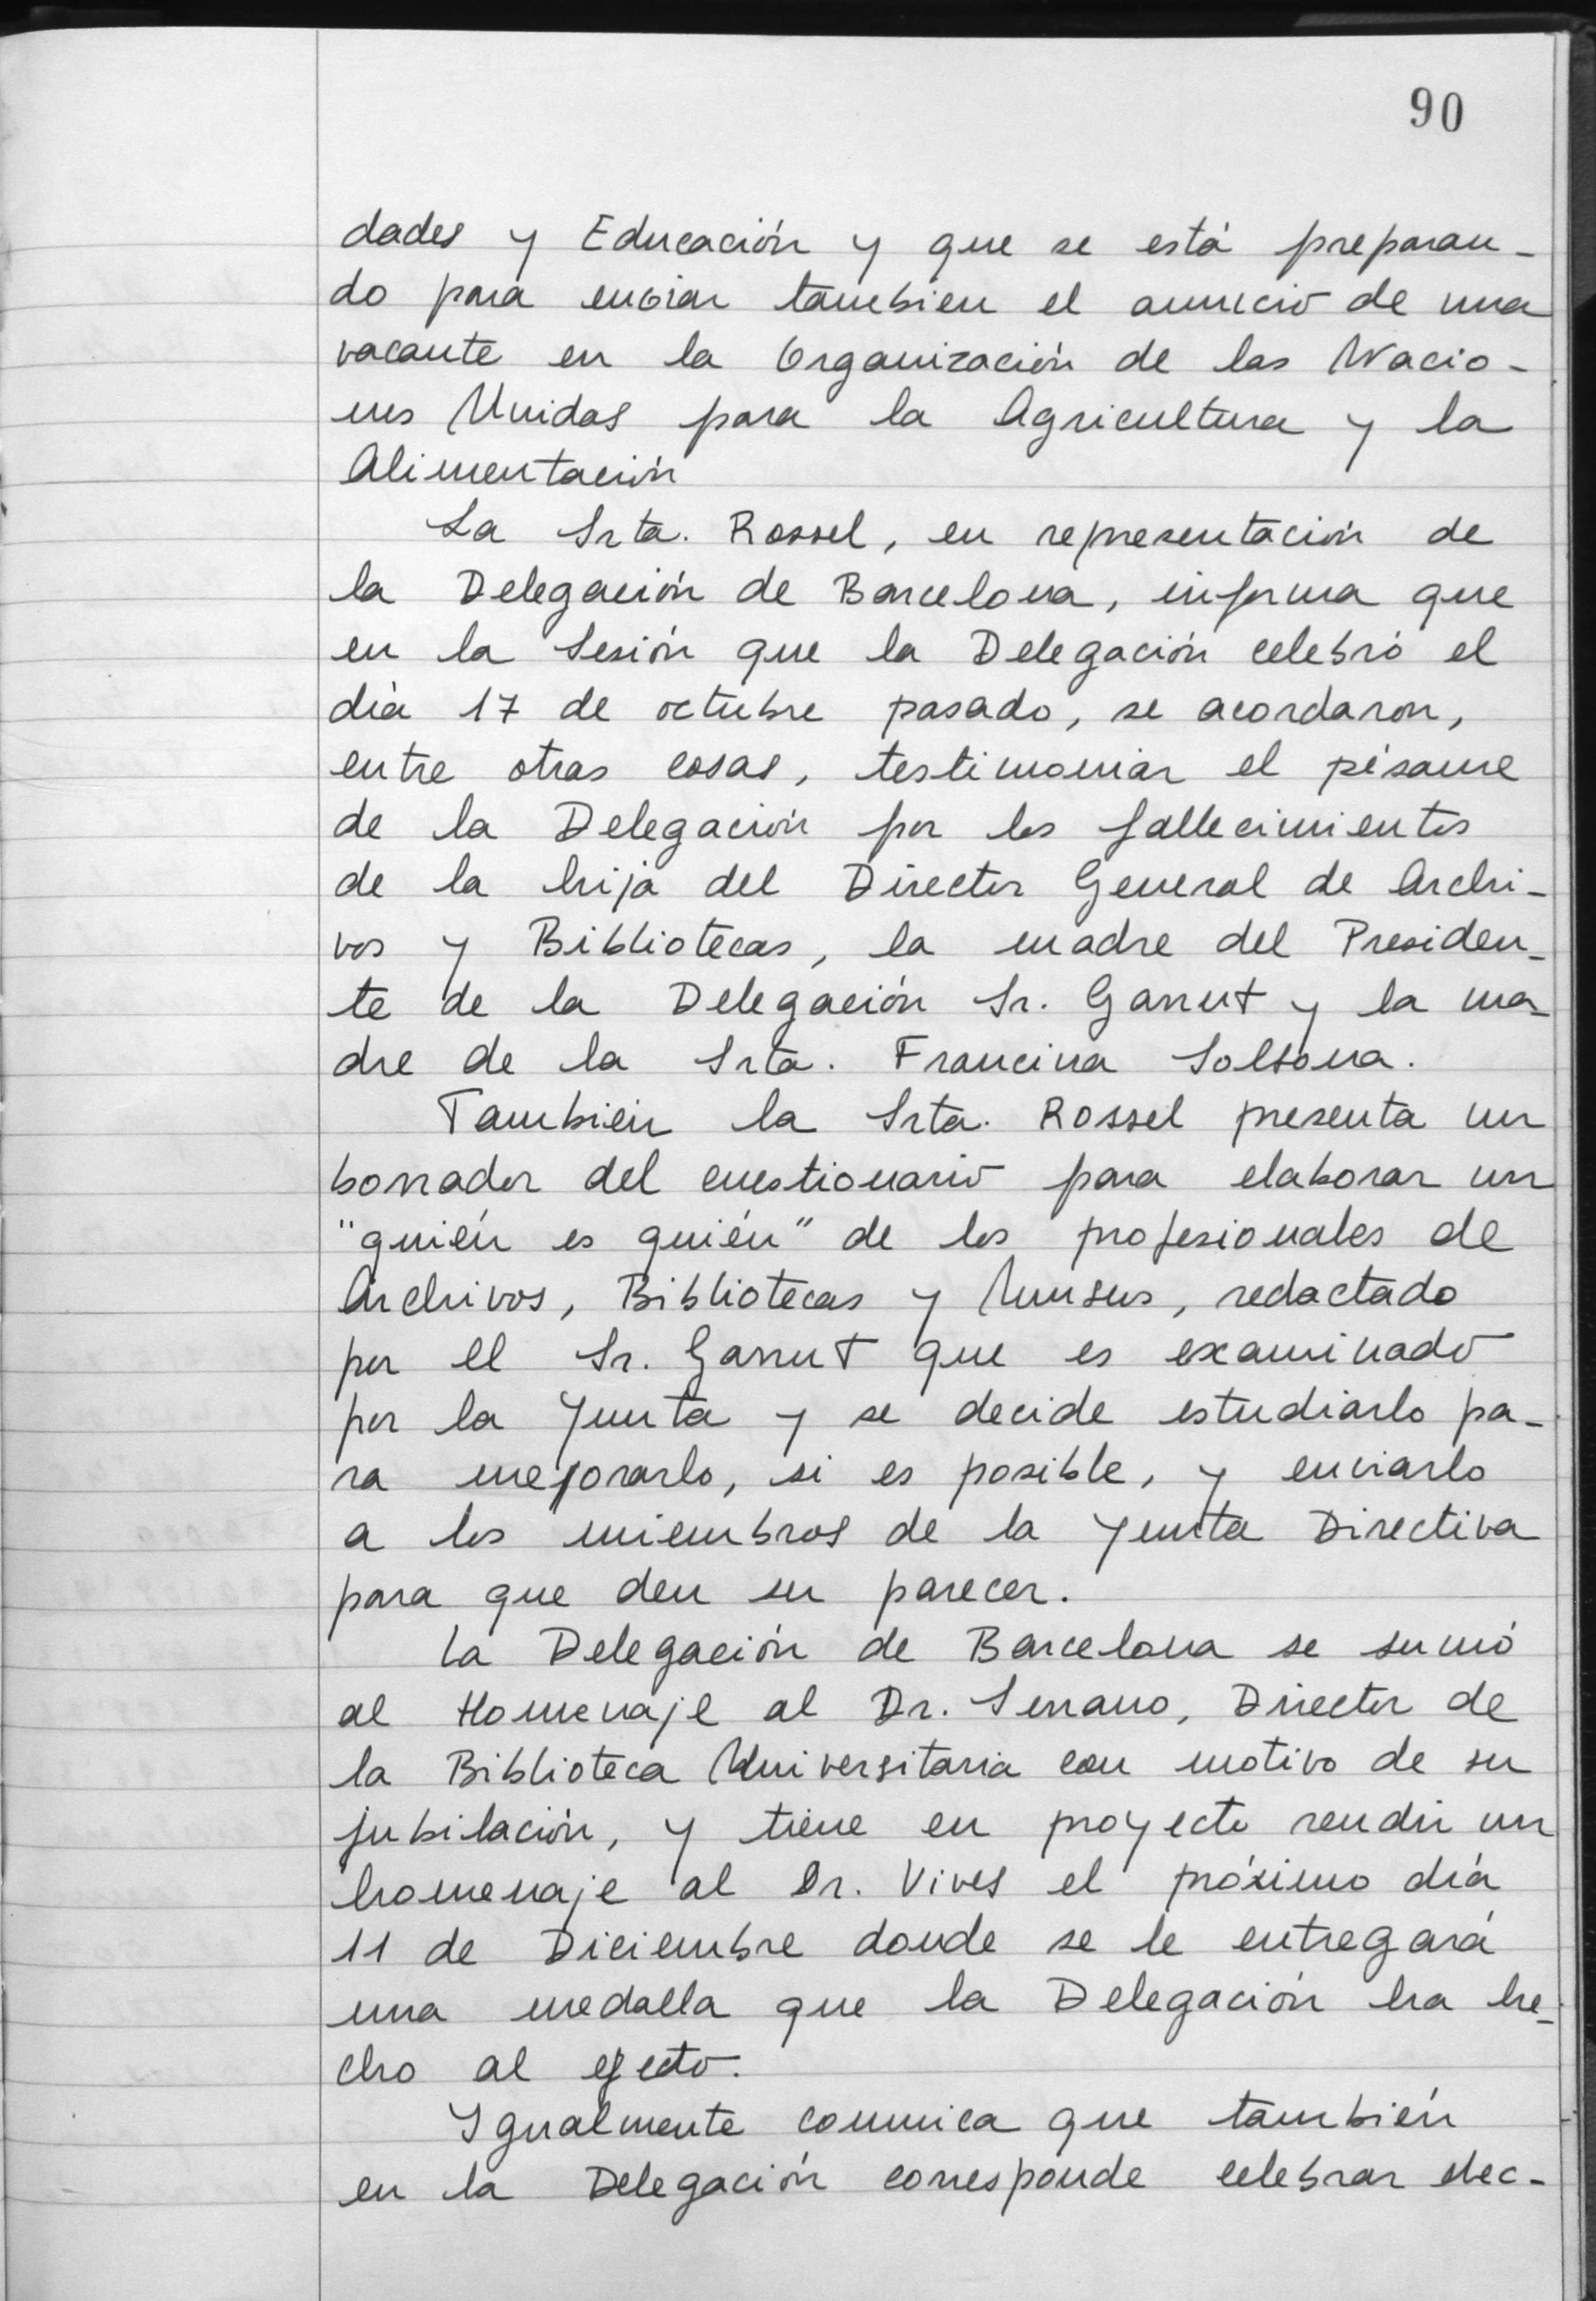 90
dades y Educación y que se está preparan-
do para enviar también el anuncio de una
vacante en la Organización de las Nacio-
nes Unidas para la Agricultura y la
Alimentación
La Srta. Rossel, en representación de
la Delegación de Barcelona, informa que
en la Sesión que la Delegación celebró el
día 17 de octubre pasado, se acordaron,
entre otras cosas, testimoniar el pésame
de la Delegación por los fallecimientos
de la hija del Director General de Archi-
vos y Bibliotecas, la madre del Presiden-
te de la Delegación Sr. Garrut y la ma-
dre de la Srta. Francina Solsona.
También la Srta. Rossel presenta un
borrador del cuestionario para elaborar un
"quién es quién" de los profesionales de
Archivos, Bibliotecas y Museos, redactado
por el Sr. Garrut que es examinado
por la Junta y se decide estudiarlo pa-
ra mejorarlo, si es posible, y enviarlo
a los miembros de la Junta Directiva
para que den su parecer.
La Delegación de Barcelona se sumó
al Homenaje al Dr. Serrano, Director de
la Biblioteca Universitaria con motivo de su
jubilación, y tiene en proyecto rendir un
homenaje al Dr. Vives el próximo día
11 de Diciembre donde se le entregará
una medalla que la Delegación ha he-
cho al efecto.
Igualmente comunica que también
en la Delegación corresponde celebrar elec-